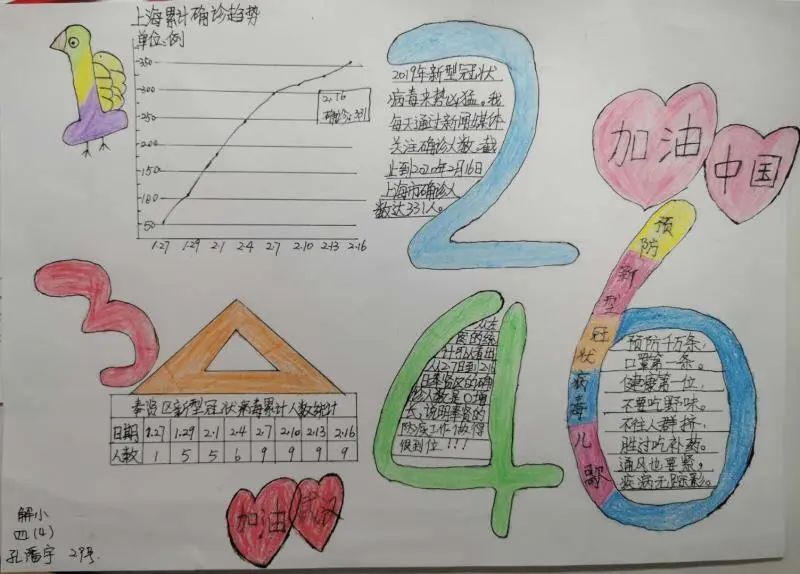 上海累计确诊趋势
单位:例
350
300
250
200
150
100
50
1.27 1.29 2.1 2.4 2.7 2.10 2.13 2.16
2.16
确诊:331
2019年新型冠状
病毒来势凶猛。我
每天通过新闻媒体
关注确诊人数,截
止到2020年2月16日
上海市确诊人
数达331人。
加油
中国
预防新型冠状病毒儿歌
预防千万条,
口罩第一条。
健康第一位,
不要吃野味。
不往人群挤,
胜过吃补药。
通风也要紧,
疾病无踪影。
奉贤区新型冠状病毒累计人数统计
日期 1.27 1.29 2.1 2.4 2.7 2.10 2.13 2.16
人数 1 5 5 6 9 9 9 9
从左
图的统
计可以看出
从2.7日到2.16
日奉贤区的确
诊人数是0增
长,说明奉贤的
防疫工作做得
很到位!!!
加油
武汉
解小
四(4)
孔潘宇 29号